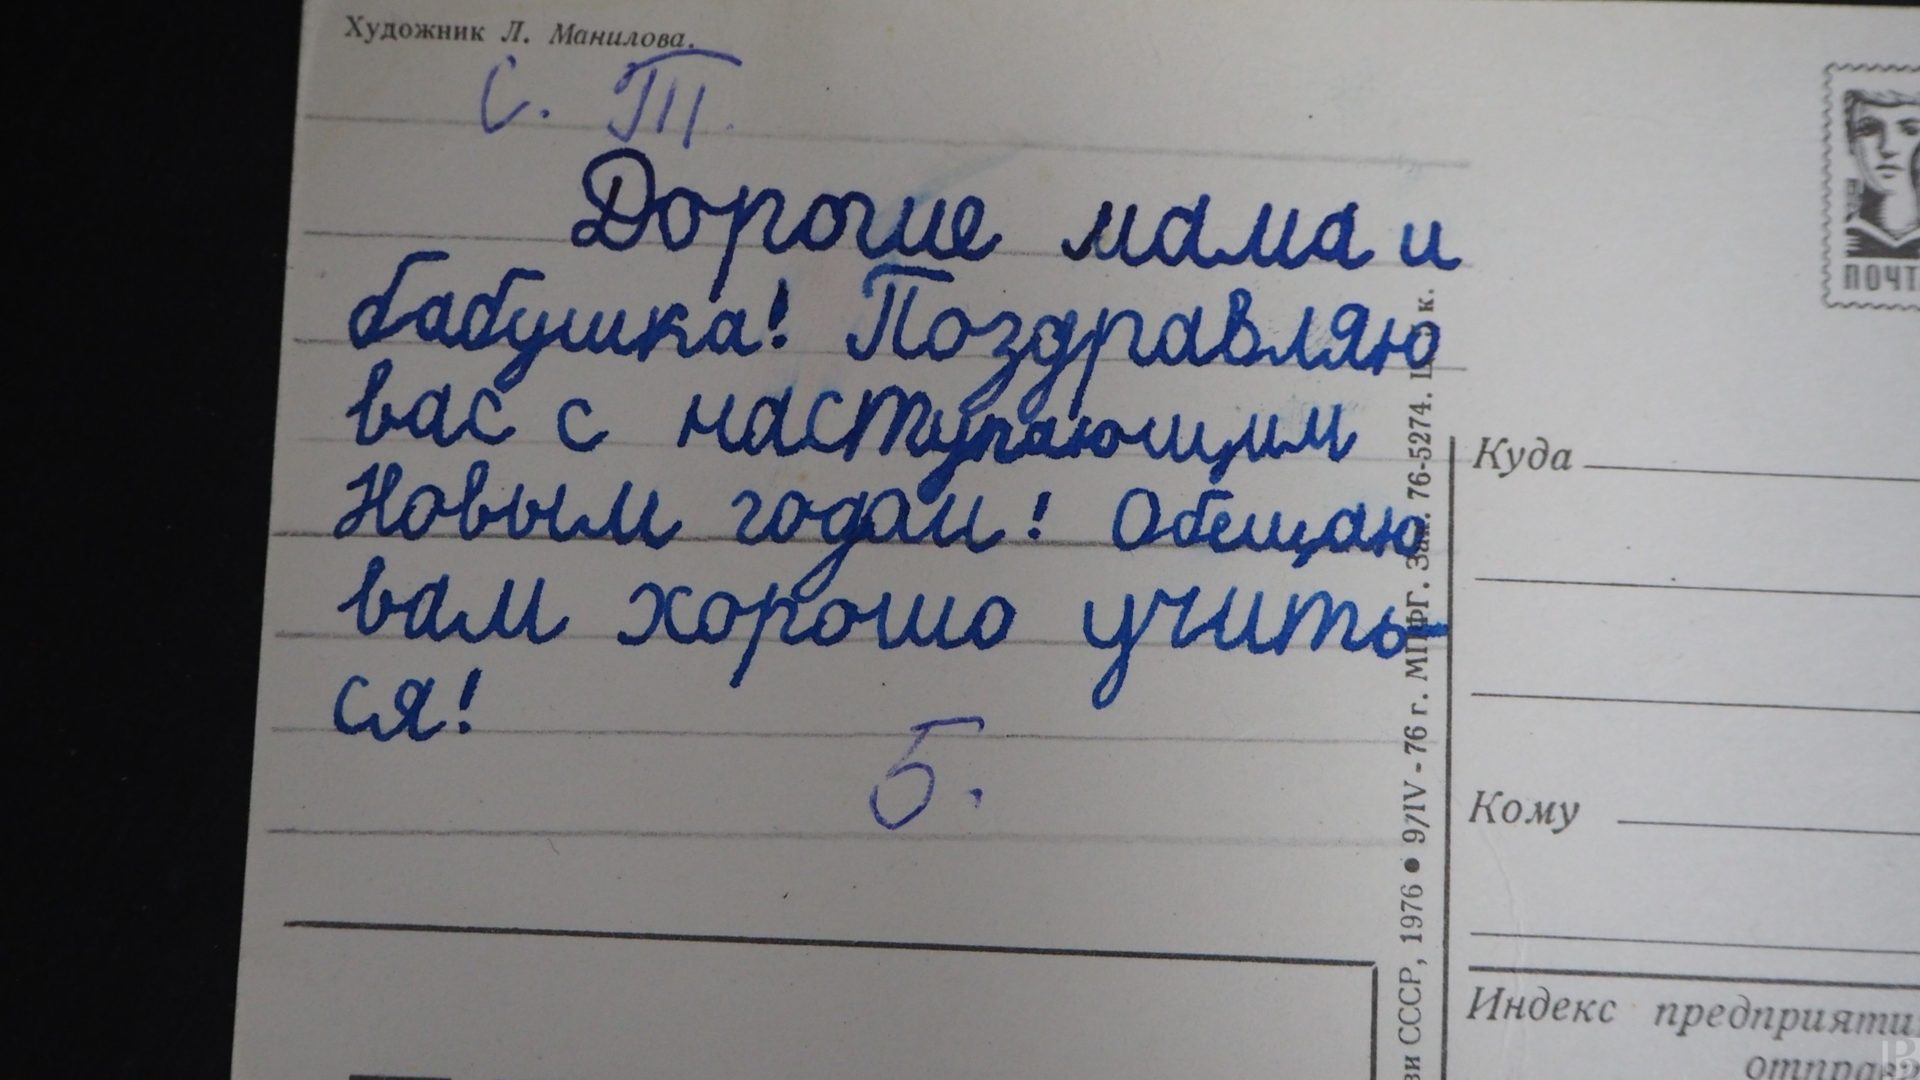 Художник Л. Манилова.
С. Т.
Дорогие мама и
бабушка! Поздравляю
вас с наступающим
Новым годом! Обещаю
вам хорошо учить-
ся!
Б.
ПОЧТ
Куда
Кому
Индекс предприяти
отправ
СССР, 1976 ● 9/IV - 76 г. МПФГ. Зак. 76-5274. Ц. к.